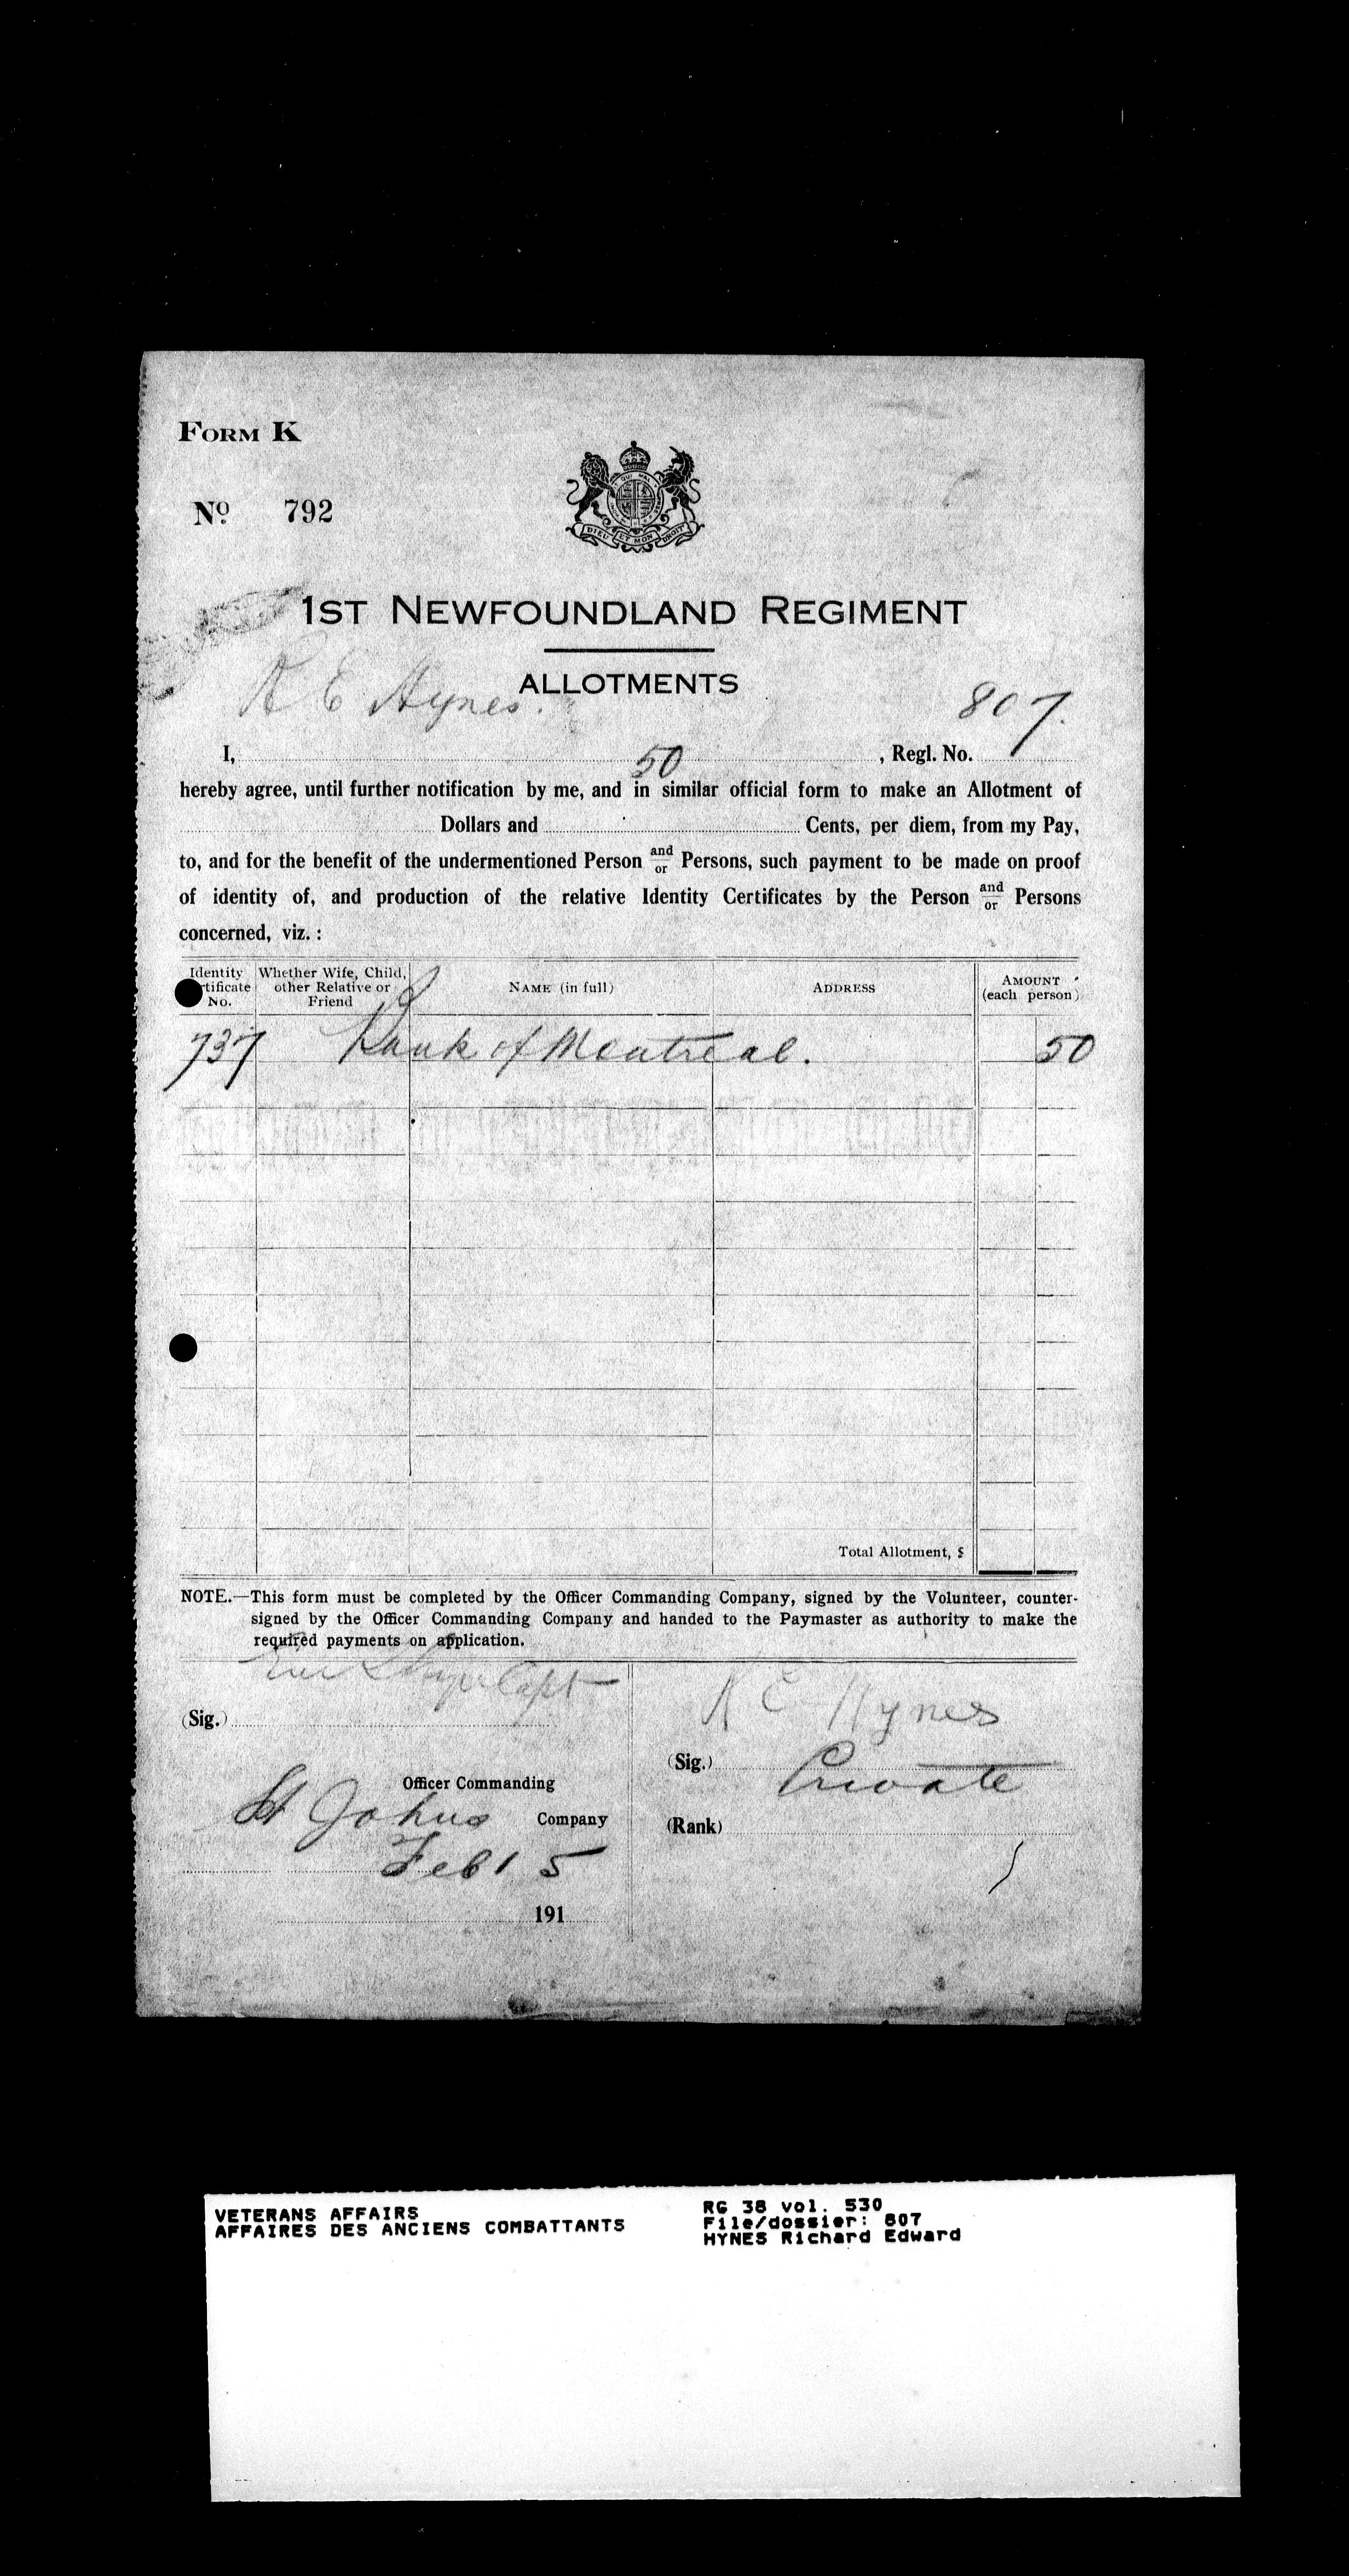 FORM K
No. 792
DIEU ET MON DROIT
1ST NEWFOUNDLAND REGIMENT
ALLOTMENTS
R E Hynes. 807.
I, , Regl. No.
50
hereby agree, until further notification by me, and in similar official form to make an Allotment of
Dollars and Cents, per diem, from my Pay,
to, and for the benefit of the undermentioned Person and/or Persons, such payment to be made on proof
of identity of, and production of the relative Identity Certificates by the Person and/or Persons
concerned, viz. :
Identity tificate No. Whether Wife, Child, other Relative or Friend NAME (in full) ADDRESS AMOUNT (each person)
737 Bank of Montreal. 50
Total Allotment, $
NOTE.—This form must be completed by the Officer Commanding Company, signed by the Volunteer, counter-
signed by the Officer Commanding Company and handed to the Paymaster as authority to make the
required payments on application.
Capt
(Sig.)
Officer Commanding
St Johns Company
Feb 15
191
R E Hynes
(Sig.)
Private
(Rank)
VETERANS AFFAIRS
AFFAIRES DES ANCIENS COMBATTANTS
RG 38 vol. 530
File/dossier: 807
HYNES Richard Edward